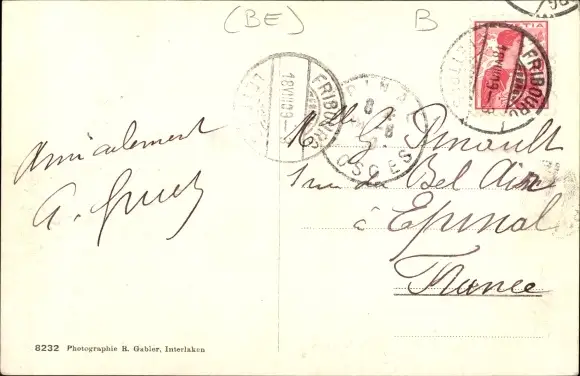 (BE)
B
HELVETIA
FRIBOURG
18.VIII.09
FRIBOURG
EPINAL
VOSGES
Amicalement
Melle G. Pinoult
1 rue du Bel Air
à Epinal
France
8232 Photographie R. Gabler, Interlaken